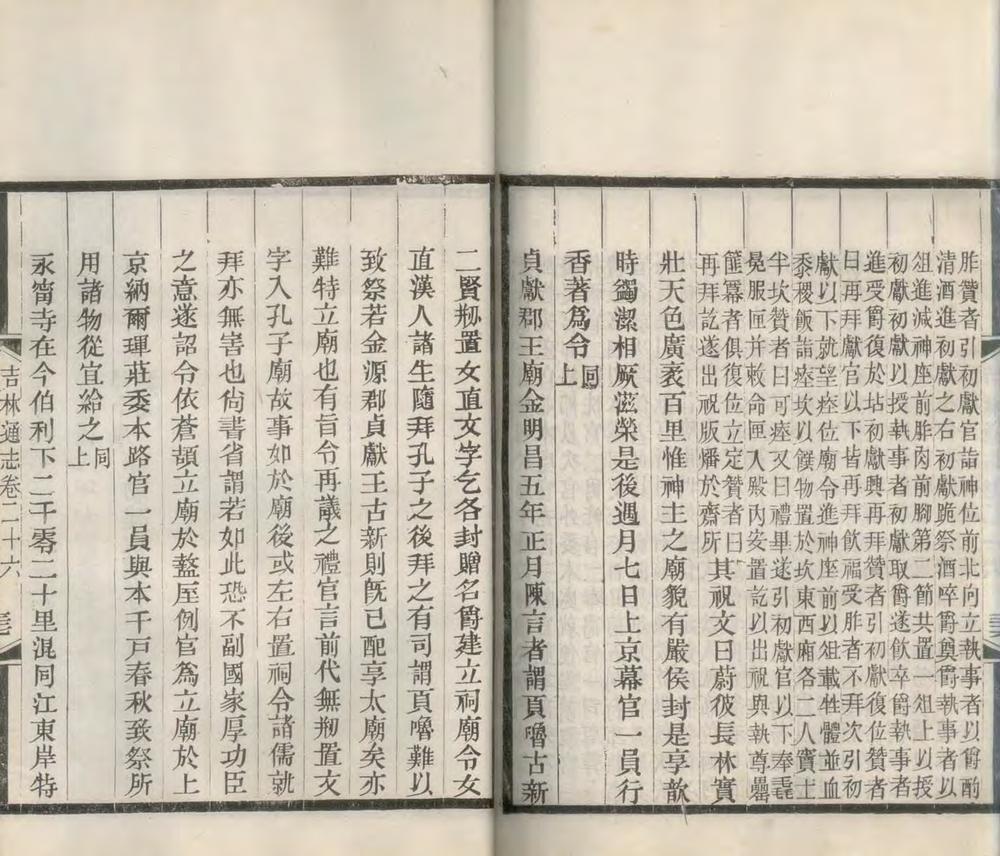 胙贊者引初獻官詣神位前北向立執事者以爵酌
清酒進初獻之右初獻跪祭酒啐爵奠爵執事者以
俎進減神座前胙肉前腳第二節共置一俎上以授
初獻初獻以授執事者初獻取爵遂飲卒爵執事者
進受爵復於坫初獻興再拜贊者引初獻復位贊者
曰再拜獻官以下皆再拜飲福受胙者不拜次引初
獻以下就望瘞位廟令進神座前以俎載牲體並血
黍稷飯詣瘞坎以饌物置於坎東西廂各二人寘土
半坎贊者曰可瘞又曰禮畢遂引初獻官以下奉毳
冕服匣并敕命匣入殿內安置訖以出祝與執尊罍
篚冪者俱復位立定贊者曰
再拜訖遂出祝版燔於齋所 其祝文曰蔚彼長林實
壯天色廣袤百里惟神主之廟貌有嚴侯封是享歆
時蠲潔相厥滋榮是後遇月七日上京幕官一員行
香著爲令同上
貞獻郡王廟金明昌五年正月陳言者謂頁嚕古新
二賢刱置女直文字乞各封贈名爵建立祠廟令女
直漢人諸生隨拜孔子之後拜之有司謂頁嚕難以
致祭若金源郡貞獻王古新則旣已配享太廟矣亦
難特立廟也有旨令再議之禮官言前代無刱置文
字入孔子廟故事如於廟後或左右置祠令諸儒就
拜亦無害也尙書省謂若如此恐不副國家厚功臣
之意遂詔令依蒼頡立廟於盩厔例官爲立廟於上
京納爾琿莊委本路官一員與本千戸春秋致祭所
用諸物從宜給之同上
永甯寺在今伯利下二千零二十里混同江東岸特
吉林通志卷二十六